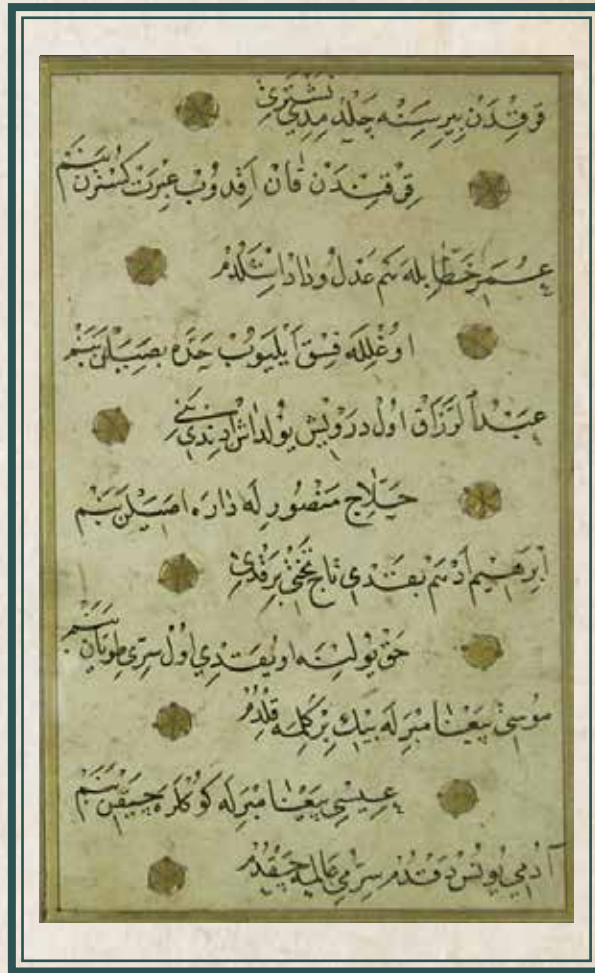 قرقندن بيرسنه چلدمدي نشتري
قرقندن قان اقدوب عبرت كسترن بنم
عمر خطابله كم عدل و داد اشلدم
اوغلله فسق ايليوب حده بصيلن بنم
عبد الرزاق اول درويش يولداش ادندي بني
حلاج منصورله داره اصيلن بنم
ابرهيم ادهم بقدي تاج تختي برقدي
حق يولنه اويقدي اول سري طويان بنم
موسى پيغامبرله بيك بر كلمه قلدم
عيسى پيغامبرله كوكلره چيقن بنم
آدمي يونس دقدم سرمي عالمه چيقدم